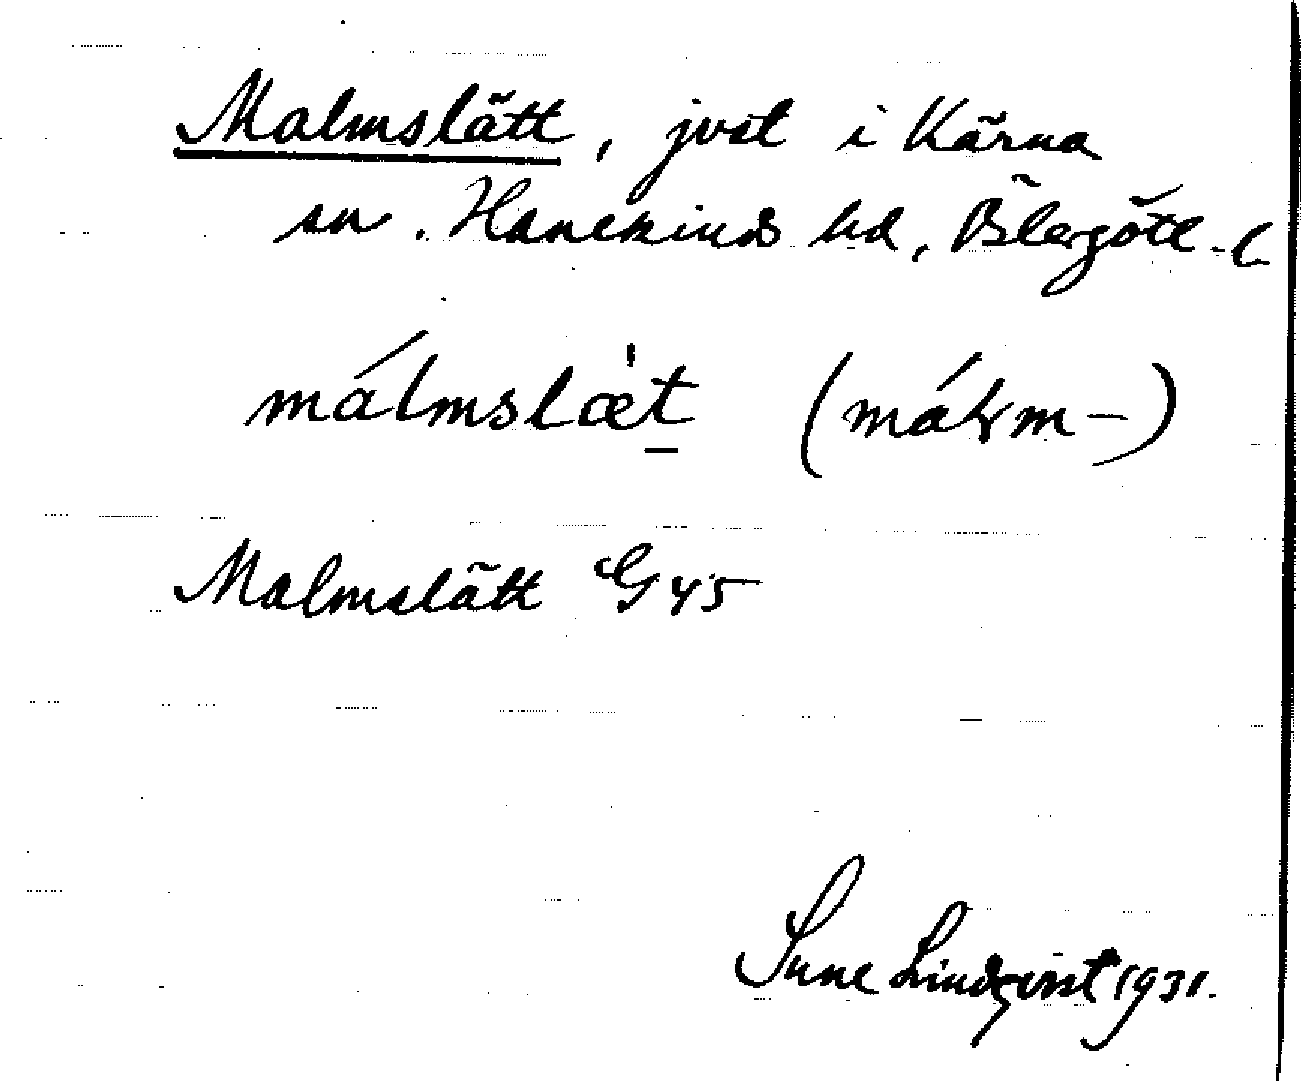 Malmslätt, jvst i Kärna
sn. Hanekinds hd, Östergötl. l.
málmslæ̀t (málm-)
Malmslätt G45
Sune Lindqvist 1931.